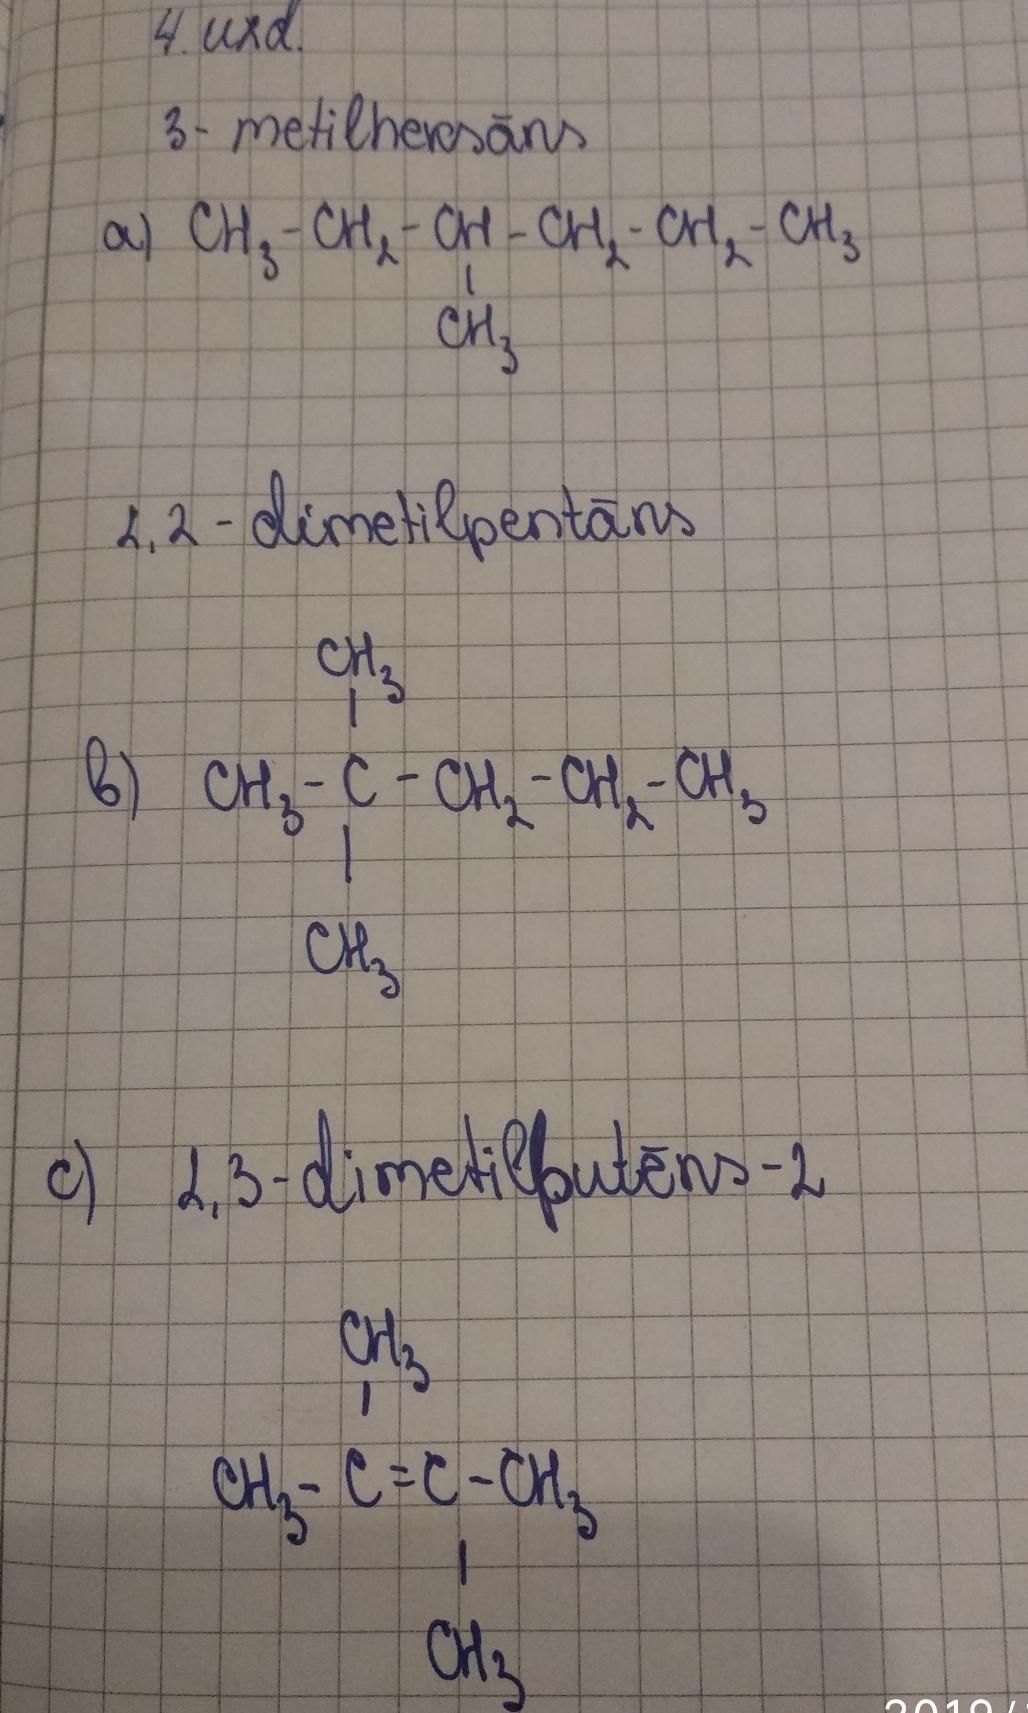 4. uzd.
3- metilheksāns
a) CH₃-CH₂-CH-CH₂-CH₂-CH₃
CH₃
2,2-dimetilpentāns
CH₃
b) CH₃-C-CH₂-CH₂-CH₃
CH₃
c) 2,3-dimetilbutēns-2
CH₃
CH₃-C=C-CH₃
CH₃